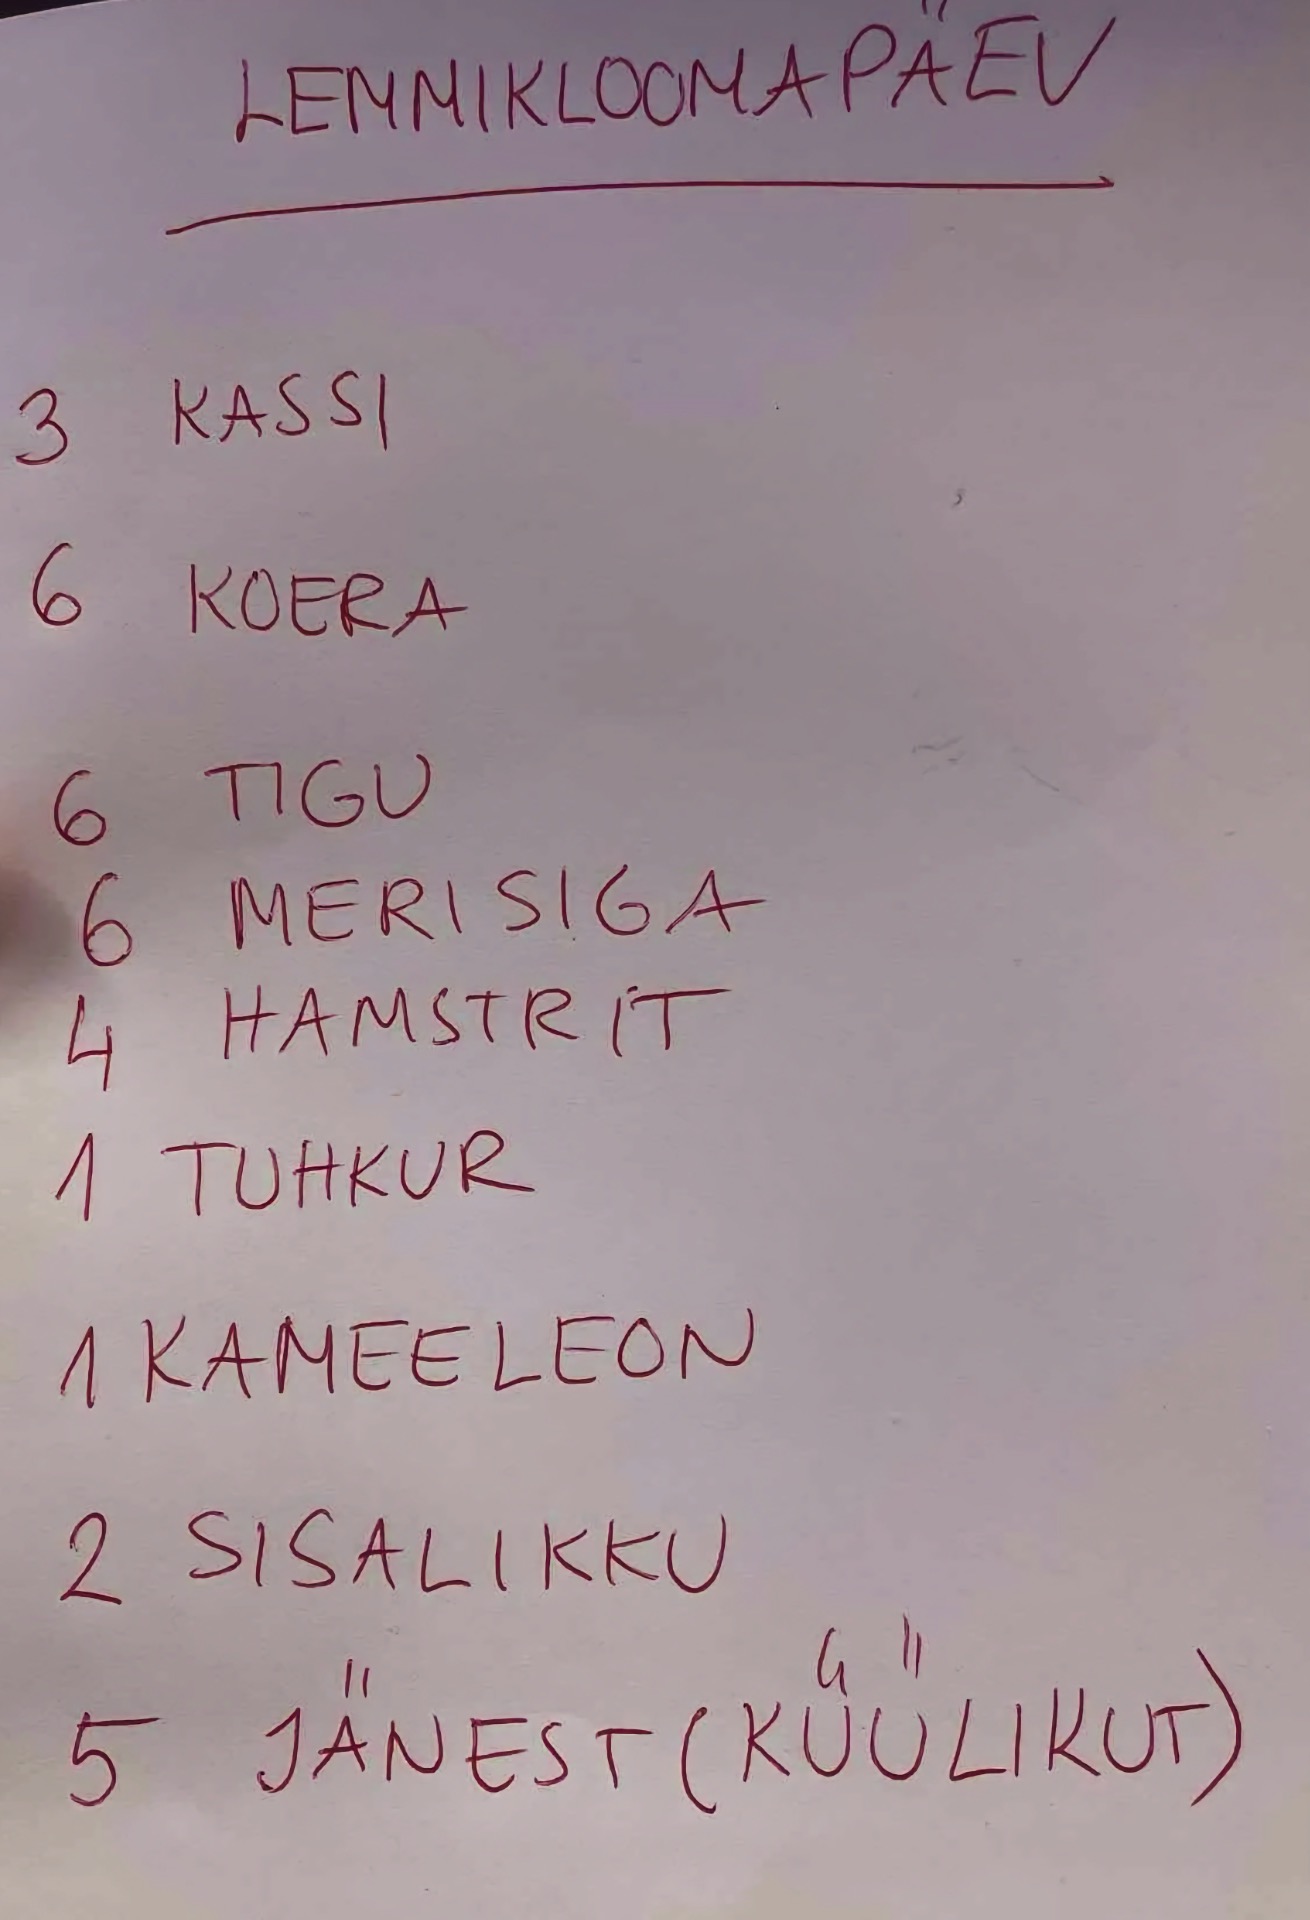 LEMMIKLOOMAPÄEV
3 KASSI
6 KOERA
6 TIGU
6 MERISIGA
4 HAMSTRIT
1 TUHKUR
1 KAMEELEON
2 SISALIKKU
5 JÄNEST (KÜÜLIKUT)